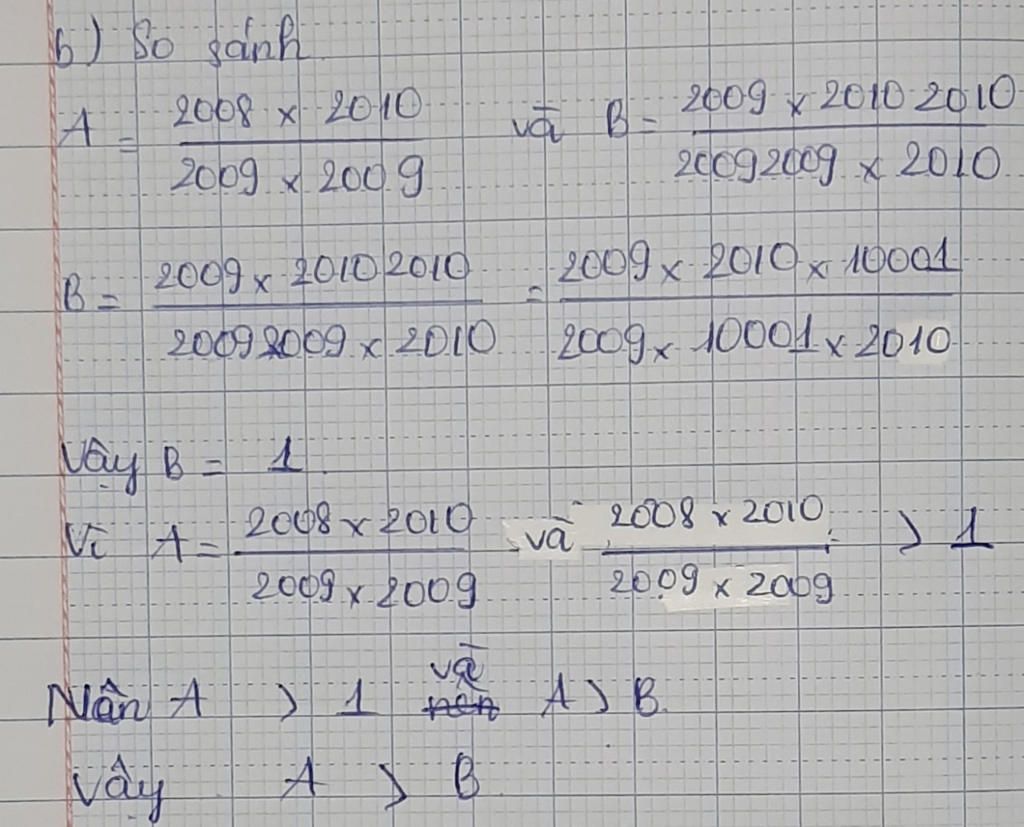 b) So sánh
A = 2008 x 2010 / 2009 x 2009 và B = 2009 x 2010 2010 / 20092009 x 2010
B = 2009 x 2010 2010 / 20092009 x 2010 = 2009 x 2010 x 10001 / 2009 x 10001 x 2010
Vậy B = 1
Vì A = 2008 x 2010 / 2009 x 2009 và 2008 x 2010 / 2009 x 2009 > 1
Nân A > 1 và nên A > B.
Vậy A > B